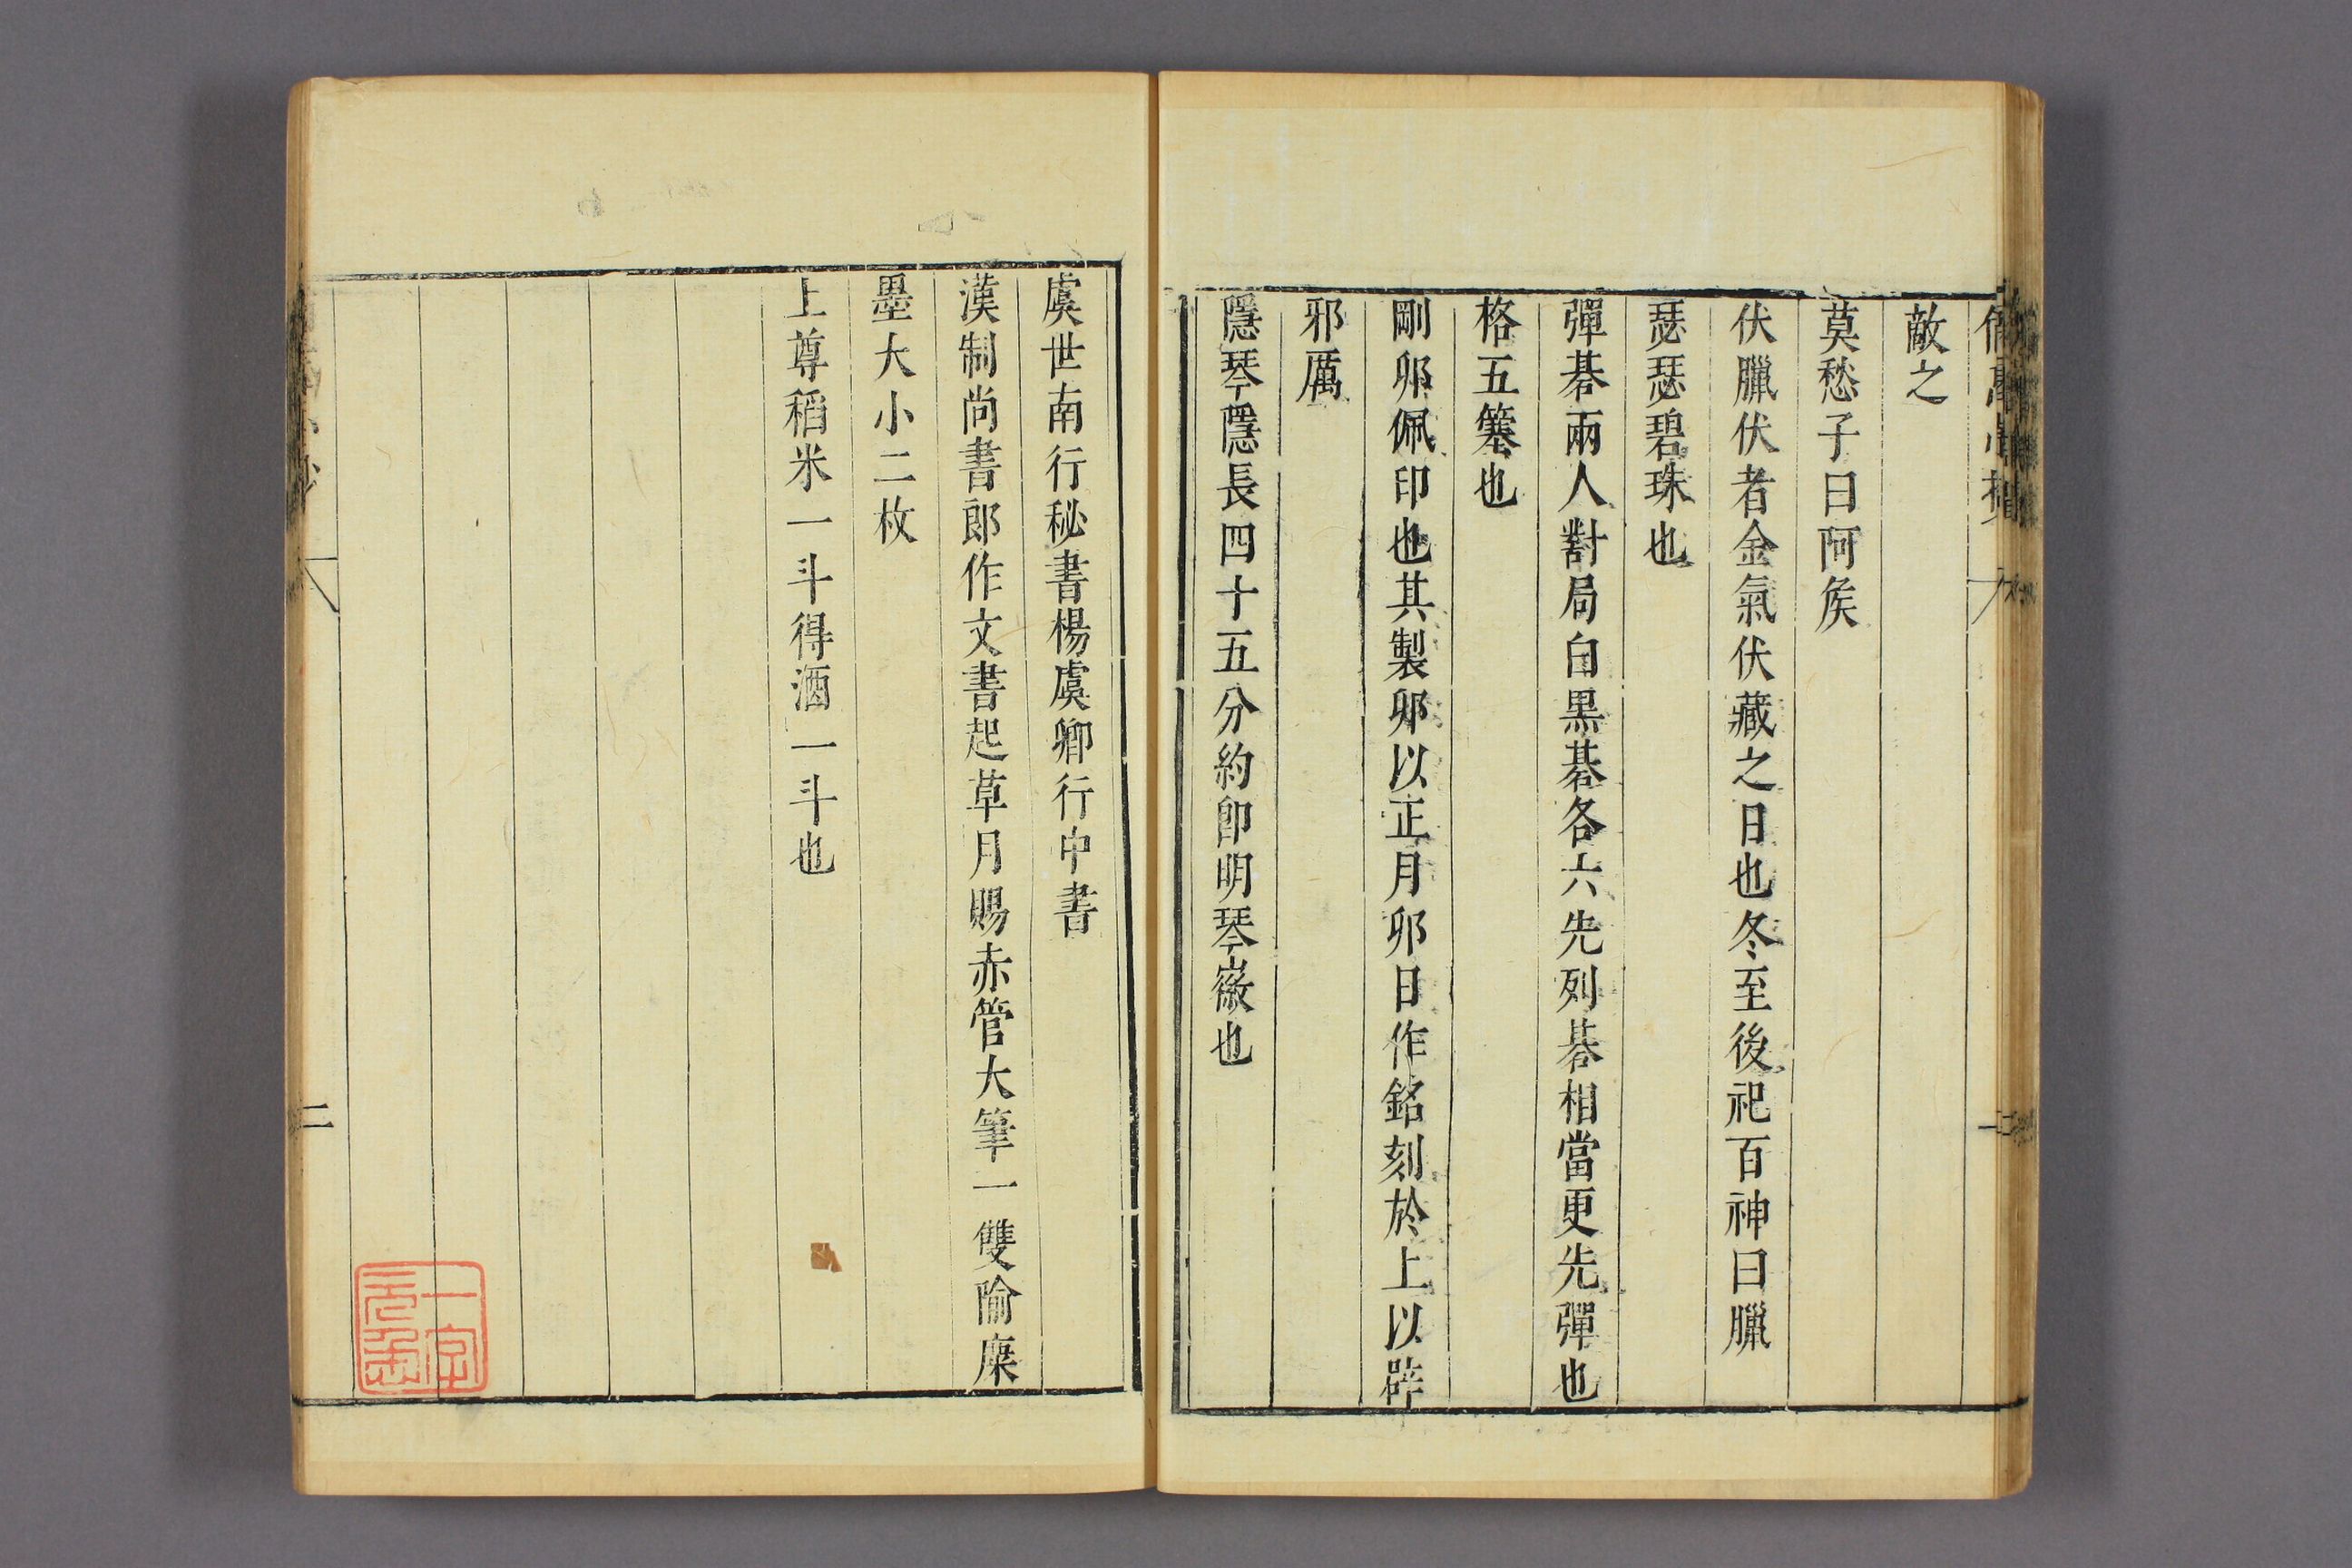 敵之
莫愁子曰阿矦
伏臘伏者金氣伏藏之日也冬至後祀百神曰臘
瑟瑟碧珠也
彈棊兩人對局白黒棊各六先列棊相當更先彈也
格五簺也
剛卯佩印也其製卯以正月卯日作銘刻於上以辟
邪厲
隱琴隱長四十五分約卽明琴徽也
虞世南行秘書楊虞卿行中書
漢制尚書郎作文書起草月賜赤管大筆一雙隃糜
墨大小二枚
上尊稻米一斗得酒一斗也
二